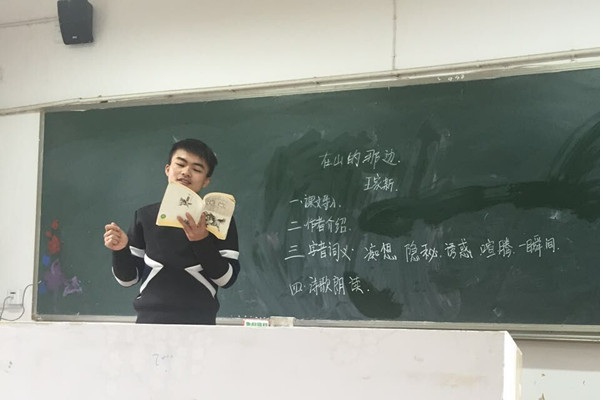 在山的那边.
王家新.
一.课文导入
二.作者介绍.
三.字音词义. 痴想. 隐秘. 诱惑. 喧腾. 一瞬间.
四.诗歌朗读.